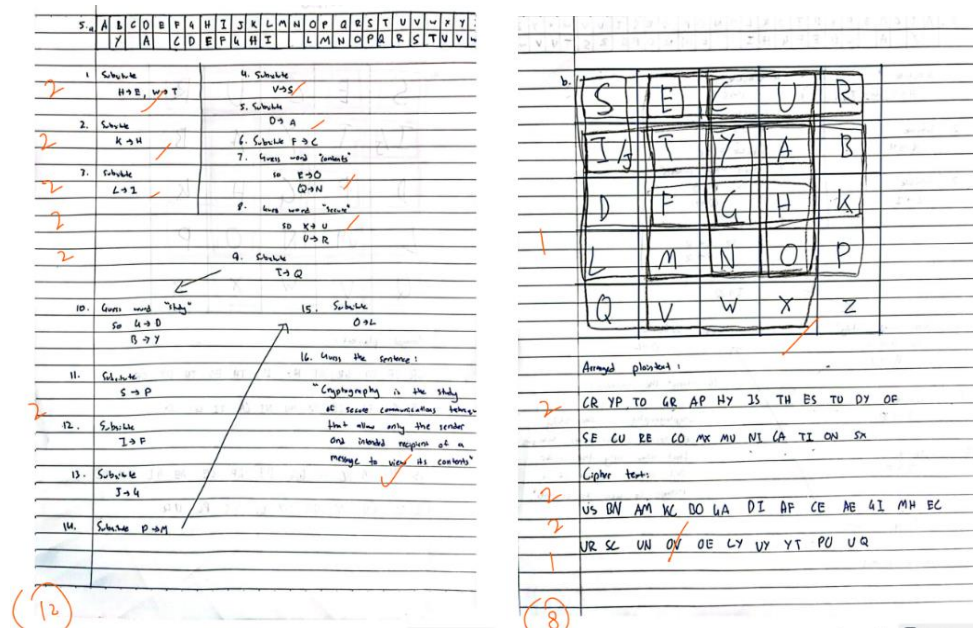 5.a A B C D E F G H I J K L M N O P Q R S T U V W X Y
Y A C D E F G H I L M N O P Q R S T U V
1. Substitute
H→E, W→T
2
2. Substitute
K→H
2
3. Substitute
L→I
2
2
2
4. Substitute
V→S
5. Substitute
D→A
6. Substitute F→C
7. Guess word "contents"
so R→O
Q→N
8. Guess word "secure"
so X→U
U→R
9. Substitute
T→Q
10. Guess word "study"
so G→D
B→Y
11. Substitute
S→P
2
12. Substitute
I→F
13. Substitute
J→G
14. Substitute P→M
15. Substitute
O→L
16. Guess the sentence:
"Cryptography is the study
of secure communications
that allow only the sender
and intended recipient of a
message to view its contents"
12
b.
S E C U R
I/J T Y A B
D F G H K
L M N O P
Q V W X Z
1
Arranged plaintext:
CR YP TO GR AP HY IS TH ES TU DY OF
2
SE CU RE CO MX MU NI CA TI ON SX
Cipher text:
US BN AM KC BO GA DI AF CE AE GI MH EC
2
2
UR SC UN OV OE LY UY YT PO UQ
1
8